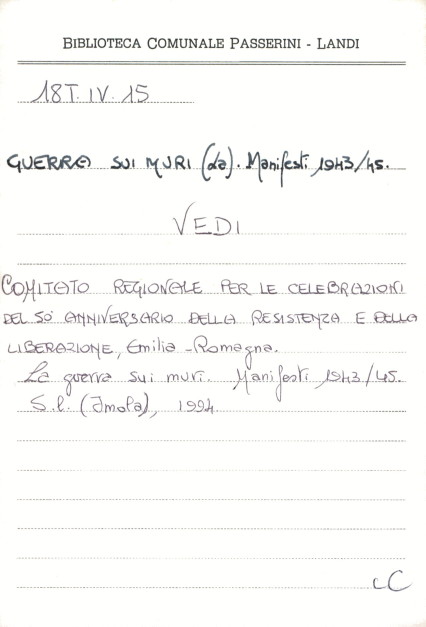 BIBLIOTECA COMUNALE PASSERINI - LANDI
18T. IV. 15
GUERRA SUI MURI (La). Manifesti 1943/45.
VEDI
COMITATO REGIONALE PER LE CELEBRAZIONI
DEL 50° ANNIVERSARIO DELLA RESISTENZA E DELLA
LIBERAZIONE, Emilia-Romagna.
La guerra sui muri. Manifesti 1943/45.
S.l. (Imola), 1994.
LC